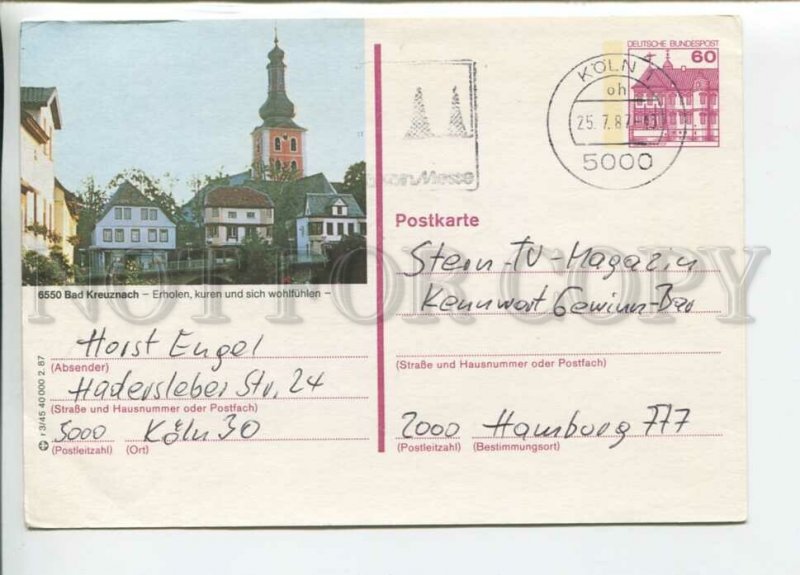 DEUTSCHE BUNDESPOST
60
KÖLN 1
oh
25.7.87
5000
Messe
6550 Bad Kreuznach – Erholen, kuren und sich wohlfühlen –
Postkarte
Stern-TV-Magazin
Kennwort Gewinn-Bar
(Straße und Hausnummer oder Postfach)
2000 Hamburg 777
(Postleitzahl) (Bestimmungsort)
Horst Engel
(Absender)
Hadersleber Str. 24
(Straße und Hausnummer oder Postfach)
5000 Köln 30
(Postleitzahl) (Ort)
r 3/45 40 000 2. 87
NOT FOR COPY